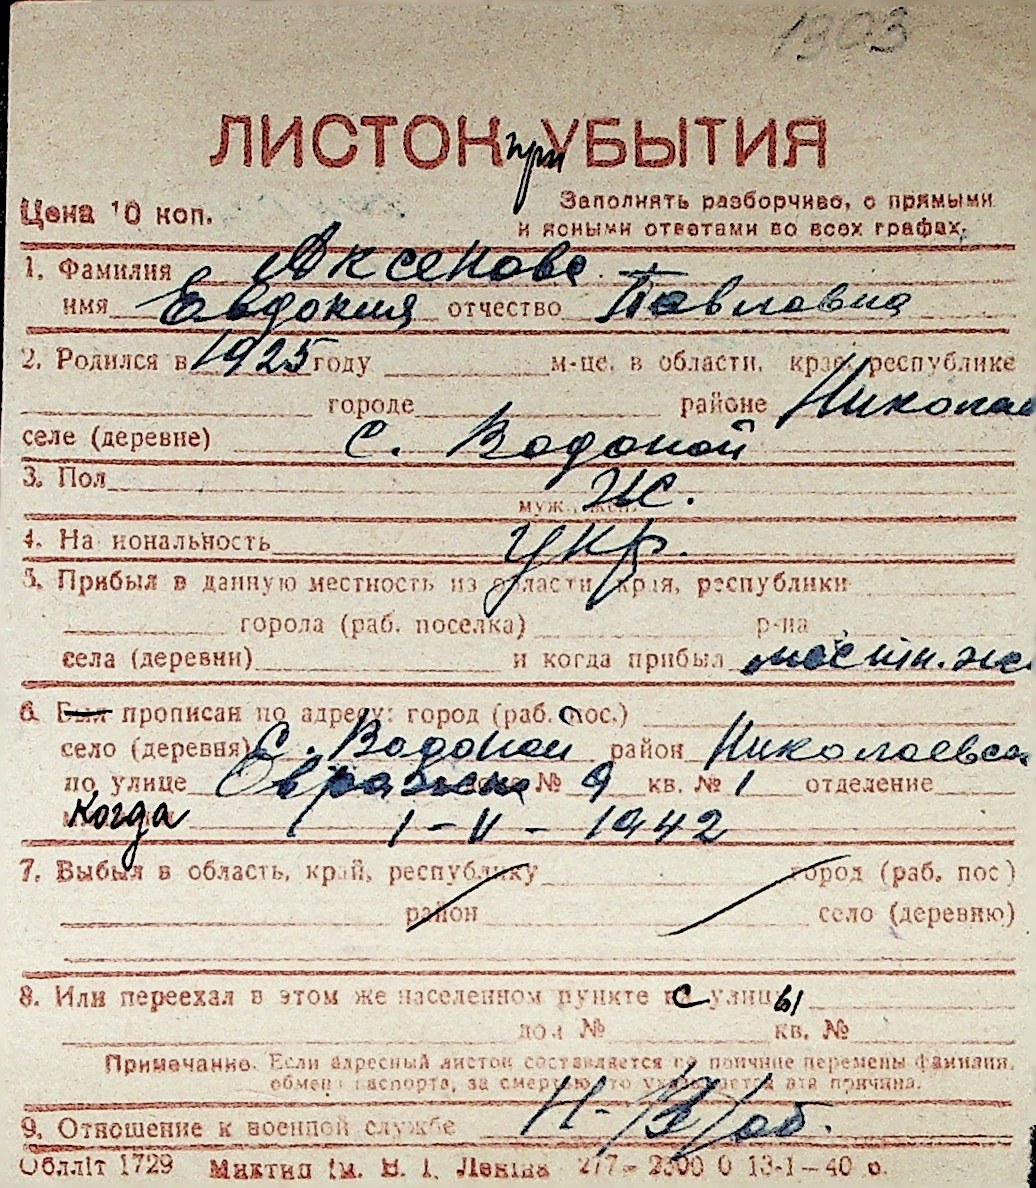 1303
ЛИСТОК при УБЫТИЯ
Цена 10 коп.
Заполнять разборчиво, с прямыми
и ясными ответами во всех графах.
1. Фамилия Аксенова
имя Евдокия отчество Павловна
2. Родился в 1925 году м-це, в области, крае, республике
городе районе Николае
селе (деревне) с. Водопой
3. Пол ж.
муж., жен.
4. Национальность укр.
5. Прибыл в данную местность из области, края, республики
города (раб. поселка) р-на
села (деревни) и когда прибыл местн. ж.
6. Был прописан по адресу: город (раб. пос.)
село (деревня) с. Водопой район Николаевск
по улице № 9 кв. № 1 отделение
Когда 1-II-1942
7. Выбыл в область, край, республику город (раб. пос)
район село (деревню)
8. Или переехал в этом же населенном пункте с улицы
дом № кв. №
Примечание. Если адресный листок составляется по причине перемены фамилии,
обмена паспорта, за смертью, то указывается эта причина.
9. Отношение к военной службе Н-В/об.
Облліт 1729 ім. В. І. Леніна 277-2300 0 13-1-40 р.